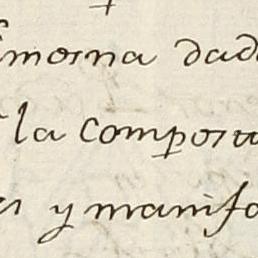 limosna dad
la compost
y manifo